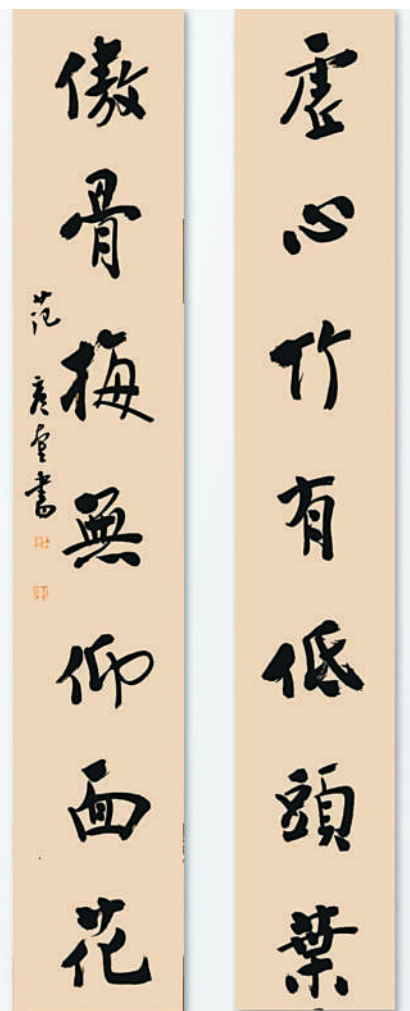 虛心竹有低頭葉
傲骨梅無仰面花
范
書